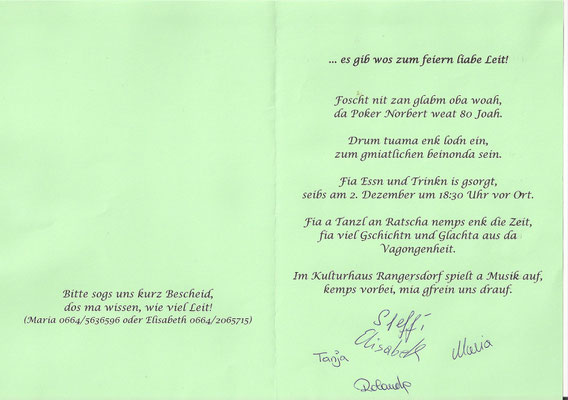 Bitte sogs uns kurz Bescheid,
dos ma wissen, wie viel Leit!
(Maria 0664/5636596 oder Elisabeth 0664/2065715)
... es gib wos zum feiern liabe Leit!
Foscht nit zan glabm oba woah,
da Poker Norbert weat 80 Joah.
Drum tuama enk lodn ein,
zum gmiatlichen beinonda sein.
Fia Essn und Trinkn is gsorgt,
seibs am 2. Dezember um 18:30 Uhr vor Ort.
Fia a Tanzl an Ratscha nemps enk die Zeit,
fia viel Gschichtn und Glachta aus da
Vagongenheit.
Im Kulturhaus Rangersdorf spielt a Musik auf,
kemps vorbei, mia gfrein uns drauf.
Steffi
Elisabeth
Tanja
Maria
Rolando